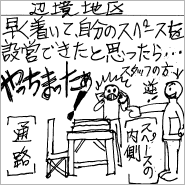 辺境地区
早く着いて、自分のスペースを
設営できたと思ったら…
やっちまったぁ!
スタッフの方→
逆
[通路]
[スペースの内側]